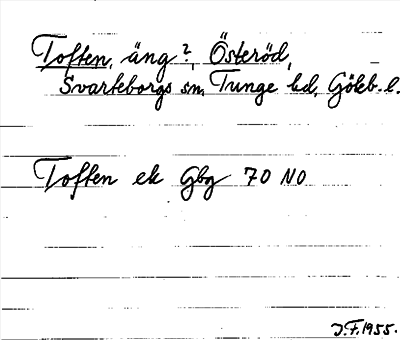 Toften, äng?, Österöd,
Svarteborgs sn, Tunge hd, Göteb. l.
Toften ek Gbg 70 NO
J.F. 1955.